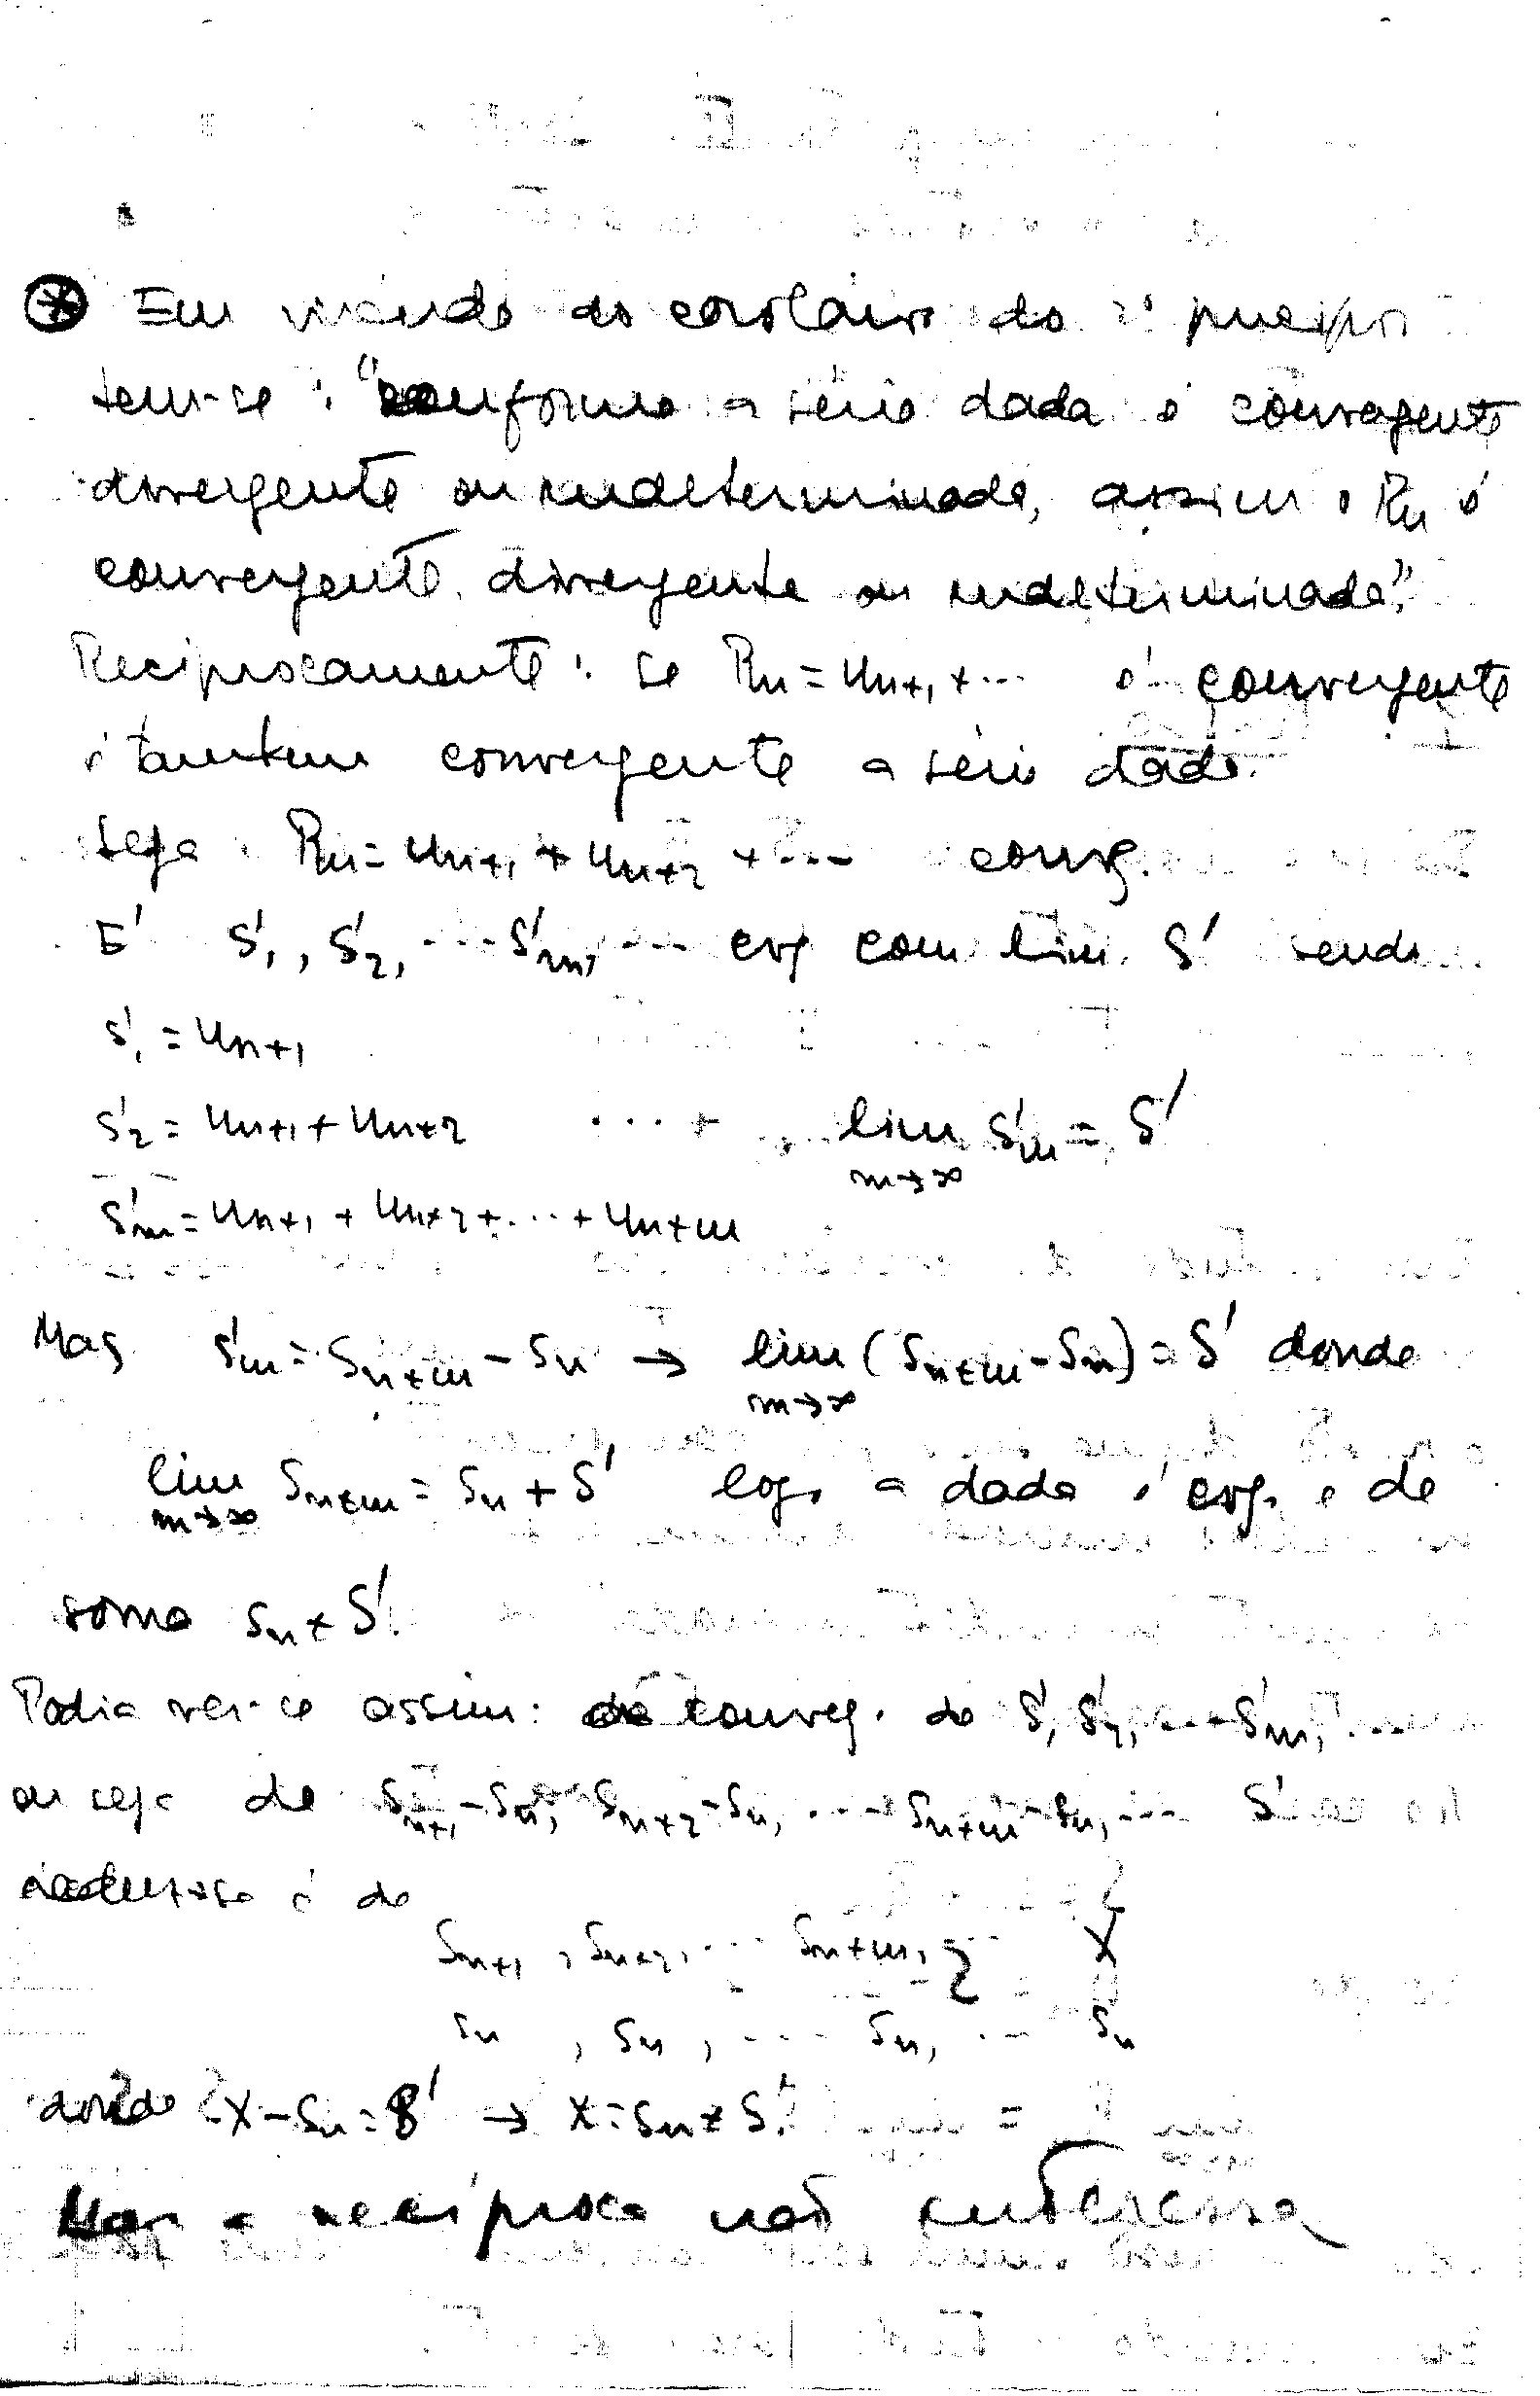 ⊛ Em virtude do corolário do 2º princípio
tem-se: "conforme a série dada é convergente
divergente ou indeterminada, assim o Rn é
convergente, divergente ou indeterminada".
Reciprocamente: se Rn = un+1 + ... é convergente
é também convergente a série dada.
Seja: Rn = un+1 + un+2 + ... conv.
É S'1, S'2, ... S'm, ... cvg com lim. S' sendo
S'1 = un+1
S'2 = un+1 + un+2 ... + , lim S'm = S'
m→∞
S'm = un+1 + un+2 + ... + un+m
Mas S'm = Sn+m - Sn → lim (Sn+m - Sn) = S' donde
m→∞
lim Sn+m = Sn + S' logo a dada é cvg. e de
m→∞
soma Sn + S'.
Podia ver-se assim: da converg. de S'1 S'2, ... S'm, ...
ou seja de Sn+1 - Sn, Sn+2 - Sn, ... Sn+m - Sn, ... S'
é de
Sn+1, Sn+2, ... Sn+m, X
Sn, Sn, ... Sn, ... Sn
donde X - Sn = S' → X = Sn + S'.
Mas a recíproca não interessa